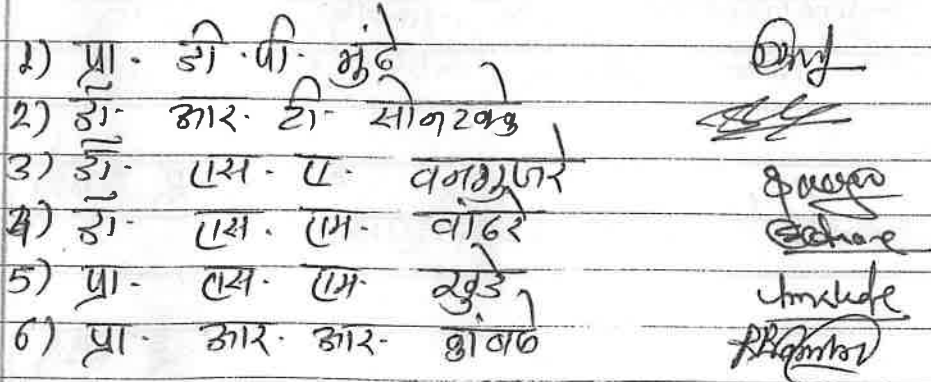 1) प्रा. डी. पी. मुंढे
2) डॉ. आर. टी. सोनटक्के
3) डॉ. एस. ए. वनगुजरे
4) डॉ. एस. एम. वांढरे
5) प्रा. एस. एम. खुडे
6) प्रा. आर. आर.